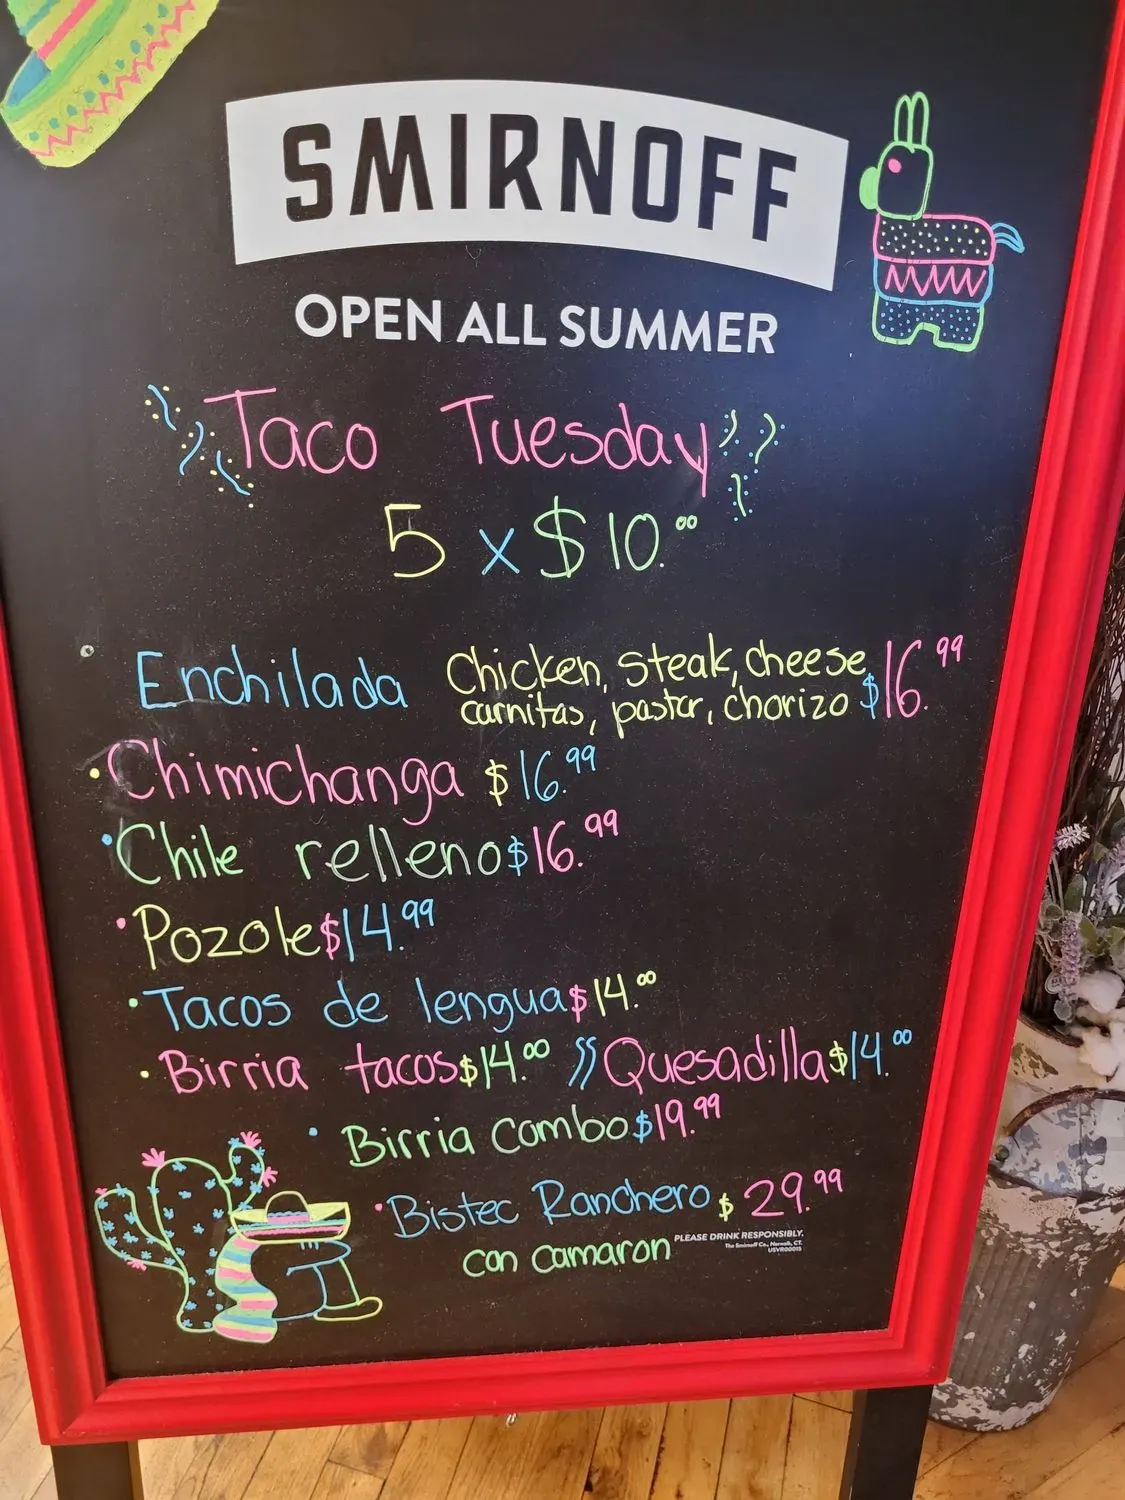 SMIRNOFF
OPEN ALL SUMMER
Taco Tuesday
5 x $10.00
Enchilada Chicken, steak, cheese, carnitas, pastor, chorizo $16.99
• Chimichanga $16.99
• Chile relleno $16.99
• Pozole $14.99
• Tacos de lengua $14.00
• Birria tacos $14.00 // Quesadilla $14.00
• Birria Combo $19.99
• Bistec Ranchero $29.99
con camaron
PLEASE DRINK RESPONSIBLY.
The Smirnoff Co., Norwalk, CT.
USVR00015